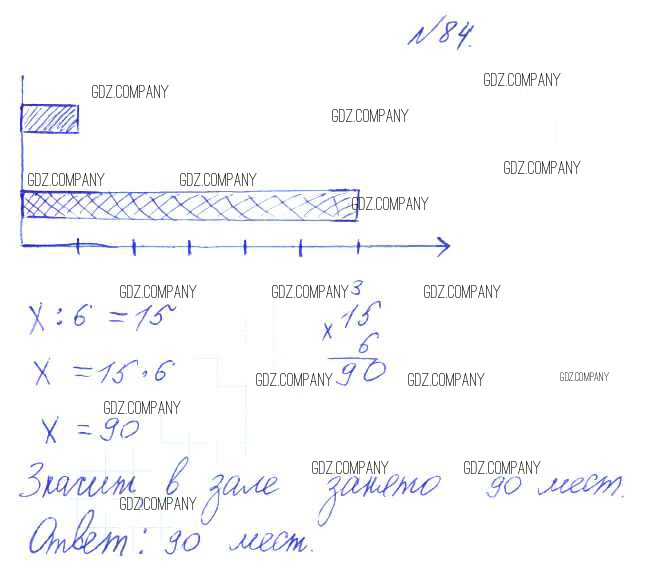 №84.
GDZ.COMPANY
GDZ.COMPANY
GDZ.COMPANY
GDZ.COMPANY
GDZ.COMPANY GDZ.COMPANY
GDZ.COMPANY
GDZ.COMPANY GDZ.COMPANY GDZ.COMPANY
3
x : 6 = 15
x 15
6
90
x = 15 · 6
GDZ.COMPANY GDZ.COMPANY GDZ.COMPANY
GDZ.COMPANY
x = 90
GDZ.COMPANY GDZ.COMPANY
Значит в зале занято 90 мест.
GDZ.COMPANY
Ответ: 90 мест.